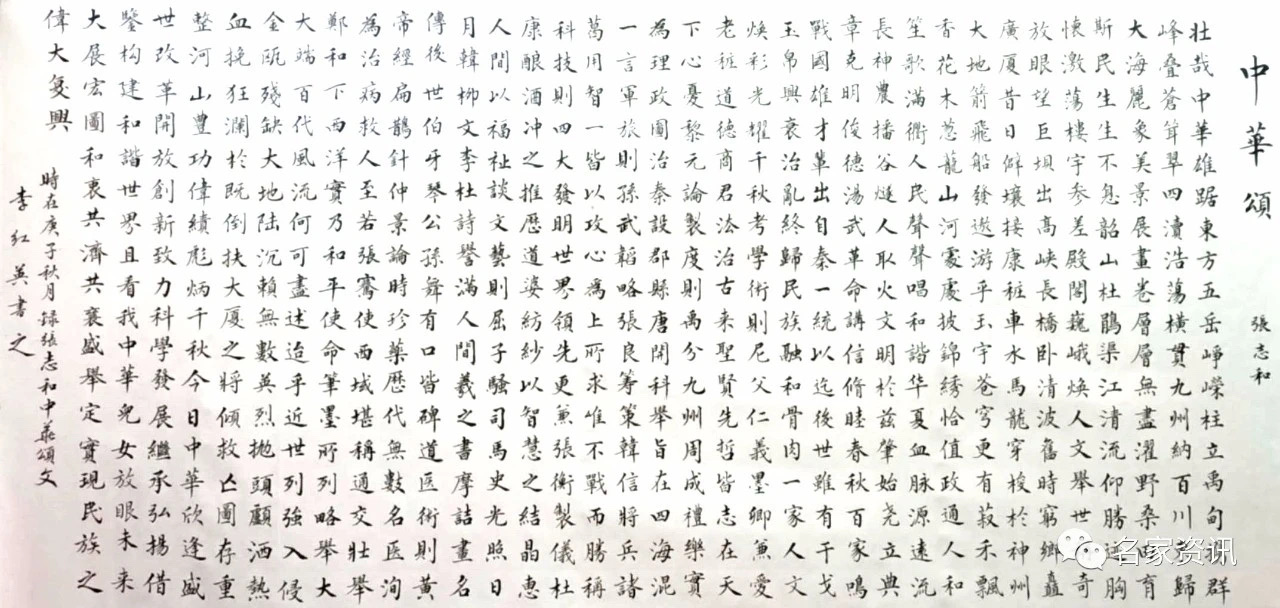 中華頌
張志和
壯哉中華雄踞東方五岳崢嶸柱立禹甸群
峰叠蒼聳翠四瀆浩蕩橫貫九州納百川歸
大海麗象美景展畫卷層層無盡濯野桑田育
斯民生生不息韶山杜鵑渠江清流仰勝迹胸
懷激蕩樓宇參差殿閣巍峨煥人文舉世奇
放眼望巨壩出高峽長橋卧清波舊時窮鄉矗
廣厦昔日僻壤接康莊車水馬龍穿梭於神州
大地箭飛船發遨游乎玉宇苍穹更有菽禾飄
香花木葱蘢山河處處披錦綉恰值政通人和
笙歌滿衢人民聲聲唱和諧华夏血脉源遠流
長神農播谷燧人取火文明於兹肇始尧立典
章克明俊德湯武革命講信脩睦春秋百家鳴
戰國雄才輩出自秦一統以迄後世雖有干戈
玉帛興衰治亂終歸民族融和骨肉一家人文
焕彩光耀千秋考學術則尼父仁義墨卿兼愛
老莊道德商君法治古来聖賢先哲皆志在天
下心憂黎元論製度則禹分九州周成禮樂實
為理政圖治秦設郡縣唐開科舉旨在四海混
一言軍旅則孫武韜略張良筹策韓信將兵諸
葛用智一皆以攻心為上所求唯不戰而勝稱
科技則四大發明世界領先更兼張衡製儀杜
康釀酒冲之推歷道婆紡紗以智慧之結晶惠
人間以福祉談文藝則屈子騷司馬史光照日
月韓柳文李杜詩譽滿人間羲之書摩詰畫名
傳後世伯牙琴公孫舞有口皆碑道医術則黄
帝經扁鵲針仲景論時珍藥歷代無數名医洵
為治病救人至若張騫使西域堪稱通交壯舉
鄭和下西洋實乃和平使命筆墨所列略舉大
大端百代風流何可盡述迨乎近世列強入侵
金甌殘缺大地陆沉賴無數英烈拋頭顱洒熱
血挽狂瀾於既倒扶大厦之將傾救亡圖存重
整河山豐功偉績彪炳千秋今日中華欣逢盛
世改革開放創新致力科學發展繼承弘揚借
鑒构建和諧世界且看我中華兒女放眼未来
大展宏圖和衷共濟共襄盛舉定實現民族之
偉大复興
時在庚子秋月録張志和中華頌文
李红英書之
名家资讯